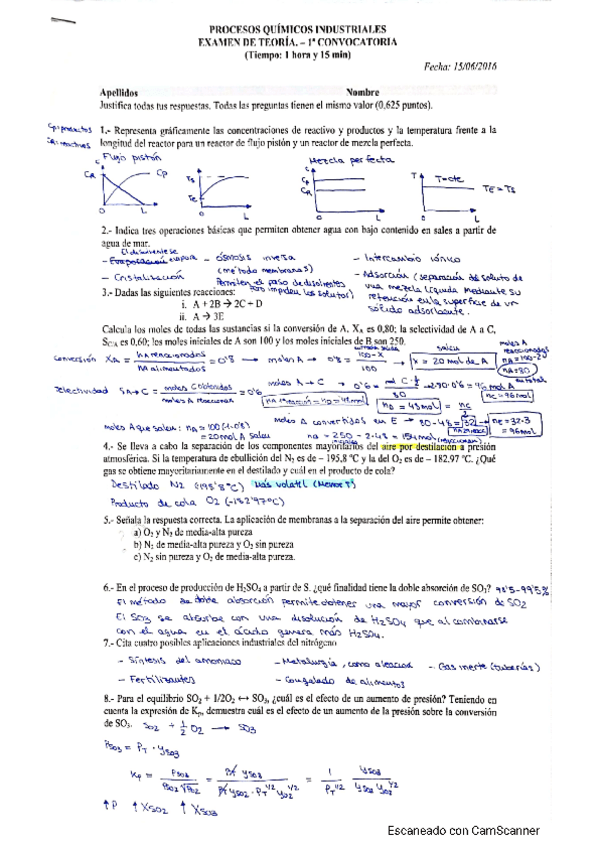 PROCESOS QUÍMICOS INDUSTRIALES
EXAMEN DE TEORÍA. – 1ª CONVOCATORIA
(Tiempo: 1 hora y 15 min)
Fecha: 15/06/2016
Apellidos Nombre
Justifica todas tus respuestas. Todas las preguntas tienen el mismo valor (0,625 puntos).
1.- Representa gráficamente las concentraciones de reactivo y productos y la temperatura frente a la
longitud del reactor para un reactor de flujo pistón y un reactor de mezcla perfecta.
Flujo pistón Mezcla perfecta
C CR CP Ts Te C CP CR T T=cte Te=Ts
0 L 0 L L L
2.- Indica tres operaciones básicas que permiten obtener agua con bajo contenido en sales a partir de
agua de mar.
El disolvente se
- Evaporación evapora - ósmosis inversa - Intercambio iónico
(método membranas)
- Cristalización - Adsorción (separación de soluto de
Permiten el paso de disolventes una mezcla líquida mediante su
pero impiden los solutos) retención en la superficie de un
sólido adsorbente.
3.- Dadas las siguientes reacciones:
i. A + 2B → 2C + D
ii. A → 3E
Calcula los moles de todas las sustancias si la conversión de A, XA es 0,80; la selectividad de A a C,
SC/A es 0,60; los moles iniciales de A son 100 y los moles iniciales de B son 250.
conversión XA = nA reaccionados / nA alimentados = 0'8 → moles A → 0'8 = 100-X / 100 → x = 20 mol de A
Selectividad SA→C = moles C obtenidos / moles A reaccionan = 0'6
moles A → C
nD = 48 mol
moles A que salen: nA = 100(1-0'8)
= 20 mol A salen
moles A convertidos en E → 80-48 = 32
nE = 32·3
= 96 mol
4.- Se lleva a cabo la separación de los componentes mayoritarios del aire por destilación a presión
atmosférica. Si la temperatura de ebullición del N2 es de – 195,8 ºC y la del O2 es de – 182,97 ºC. ¿Qué
gas se obtiene mayoritariamente en el destilado y cuál en el producto de cola?
Destilado N2 (-195'8ºC) Más volátil (Menor T)
Producto de cola O2 (-182'97ºC)
5.- Señala la respuesta correcta. La aplicación de membranas a la separación del aire permite obtener:
a) O2 y N2 de media-alta pureza
b) N2 de media-alta pureza y O2 sin pureza
c) N2 sin pureza y O2 de media-alta pureza.
6.- En el proceso de producción de H2SO4 a partir de S. ¿qué finalidad tiene la doble absorción de SO3? 98'5-99'5%
El método de doble absorción permite obtener una mayor conversión de SO2
El SO3 se absorbe con una disolución de H2SO4 que al combinarse
con el agua en el ácido genera más H2SO4.
7.- Cita cuatro posibles aplicaciones industriales del nitrógeno
- Síntesis del amoniaco - Metalurgia, como aleación - Gas inerte (tuberías)
- Fertilizantes - Congelado de alimentos
8.- Para el equilibrio SO2 + 1/2O2 ↔ SO3, ¿cuál es el efecto de un aumento de presión? Teniendo en
cuenta la expresión de Kp, demuestra cuál es el efecto de un aumento de la presión sobre la conversión
de SO3. SO2 + 1/2 O2 → SO3
PSO3 = PT · ySO3
Kp = PSO3 / PSO2 √PO2 = PT ySO3 / PT ySO2 · PT^1/2 yO2^1/2 = 1 / PT^1/2 · ySO3 / ySO2 yO2^1/2
↑P ↑XSO2 ↑XSO3
Escaneado con CamScanner